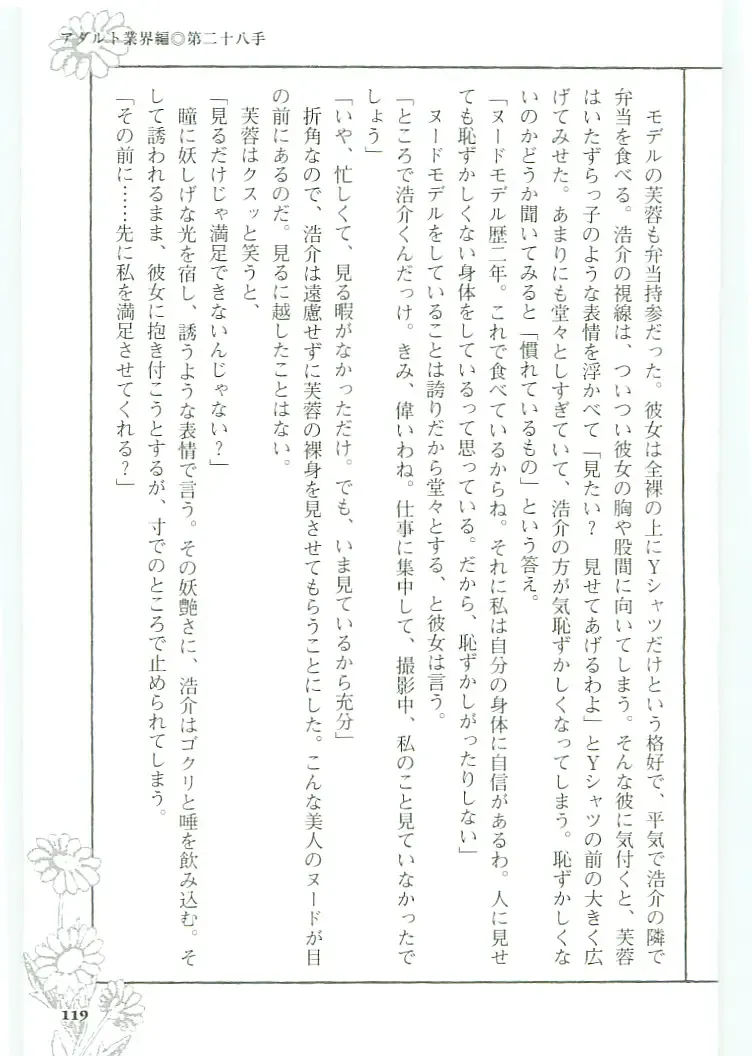 アダルト業界編◎第二十八手
モデルの芙蓉も弁当持参だった。彼女は全裸の上にYシャツだけという格好で、平気で浩介の隣で
弁当を食べる。浩介の視線は、ついつい彼女の胸や股間に向いてしまう。そんな彼に気付くと、芙蓉
はいたずらっ子のような表情を浮かべて「見たい?　見せてあげるわよ」とYシャツの前の大きく広
げてみせた。あまりにも堂々としすぎていて、浩介の方が気恥ずかしくなってしまう。恥ずかしくな
いのかどうか聞いてみると「慣れているもの」という答え。
「ヌードモデル歴二年。これで食べているからね。それに私は自分の身体に自信があるわ。人に見せ
ても恥ずかしくない身体をしているって思っている。だから、恥ずかしがったりしない」
ヌードモデルをしていることは誇りだから堂々とする、と彼女は言う。
「ところで浩介くんだっけ。きみ、偉いわね。仕事に集中して、撮影中、私のこと見ていなかったで
しょう」
「いや、忙しくて、見る暇がなかっただけ。でも、いま見ているから充分」
折角なので、浩介は遠慮せずに芙蓉の裸身を見させてもらうことにした。こんな美人のヌードが目
の前にあるのだ。見るに越したことはない。
芙蓉はクスッと笑うと、
「見るだけじゃ満足できないんじゃない?」
瞳に妖しげな光を宿し、誘うような表情で言う。その妖艶さに、浩介はゴクリと唾を飲み込む。そ
して誘われるまま、彼女に抱き付こうとするが、寸でのところで止められてしまう。
「その前に……先に私を満足させてくれる?」
119